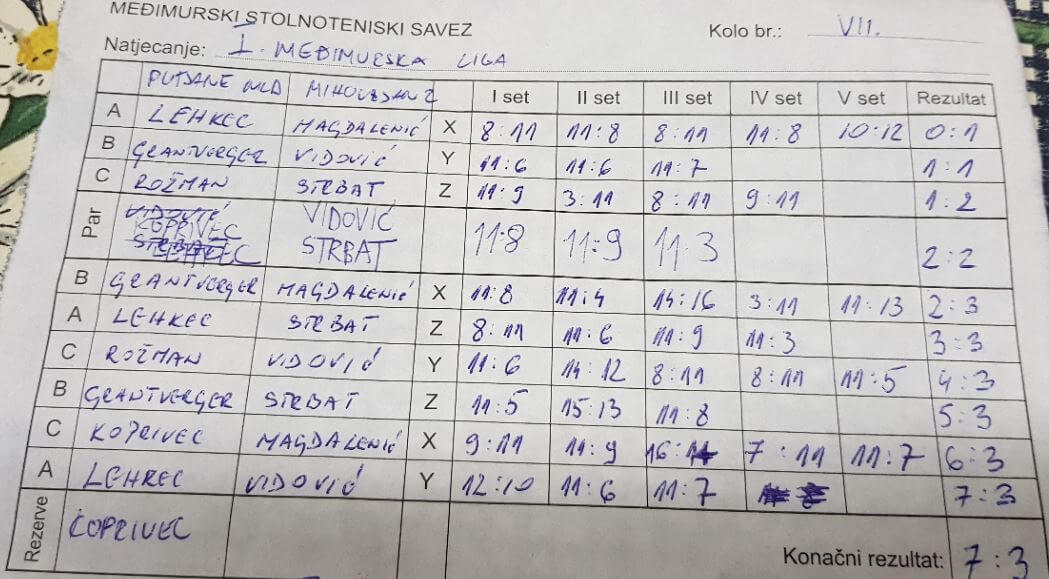 MEĐIMURSKI STOLNOTENISKI SAVEZ Kolo br.: VII.
Natjecanje: I. MEĐIMURSKA LIGA
PUTJANE MIHOVLJAN 2 I set II set III set IV set V set Rezultat
A LEHKEC MAGDALENIĆ X 8:11 11:8 8:11 11:8 10:12 0:1
B GRANTVERGER VIDOVIĆ Y 11:6 11:6 11:7 1:1
C ROŽMAN STRBAT Z 11:9 3:11 8:11 9:11 1:2
Par KOPRIVEC VIDOVIĆ STRBAT 11:8 11:9 11:3 2:2
B GRANTVERGER MAGDALENIĆ X 11:8 11:4 14:16 3:11 11:13 2:3
A LEHKEC STRBAT Z 8:11 11:6 11:9 11:3 3:3
C ROŽMAN VIDOVIĆ Y 11:6 14:12 8:11 8:11 11:5 4:3
B GRANTVERGER STRBAT Z 11:5 15:13 11:8 5:3
C KOPRIVEC MAGDALENIĆ X 9:11 11:9 16:14 7:11 11:7 6:3
A LEHKEC VIDOVIĆ Y 12:10 11:6 11:7 7:3
Rezerve KOPRIVEC
Konačni rezultat: 7:3